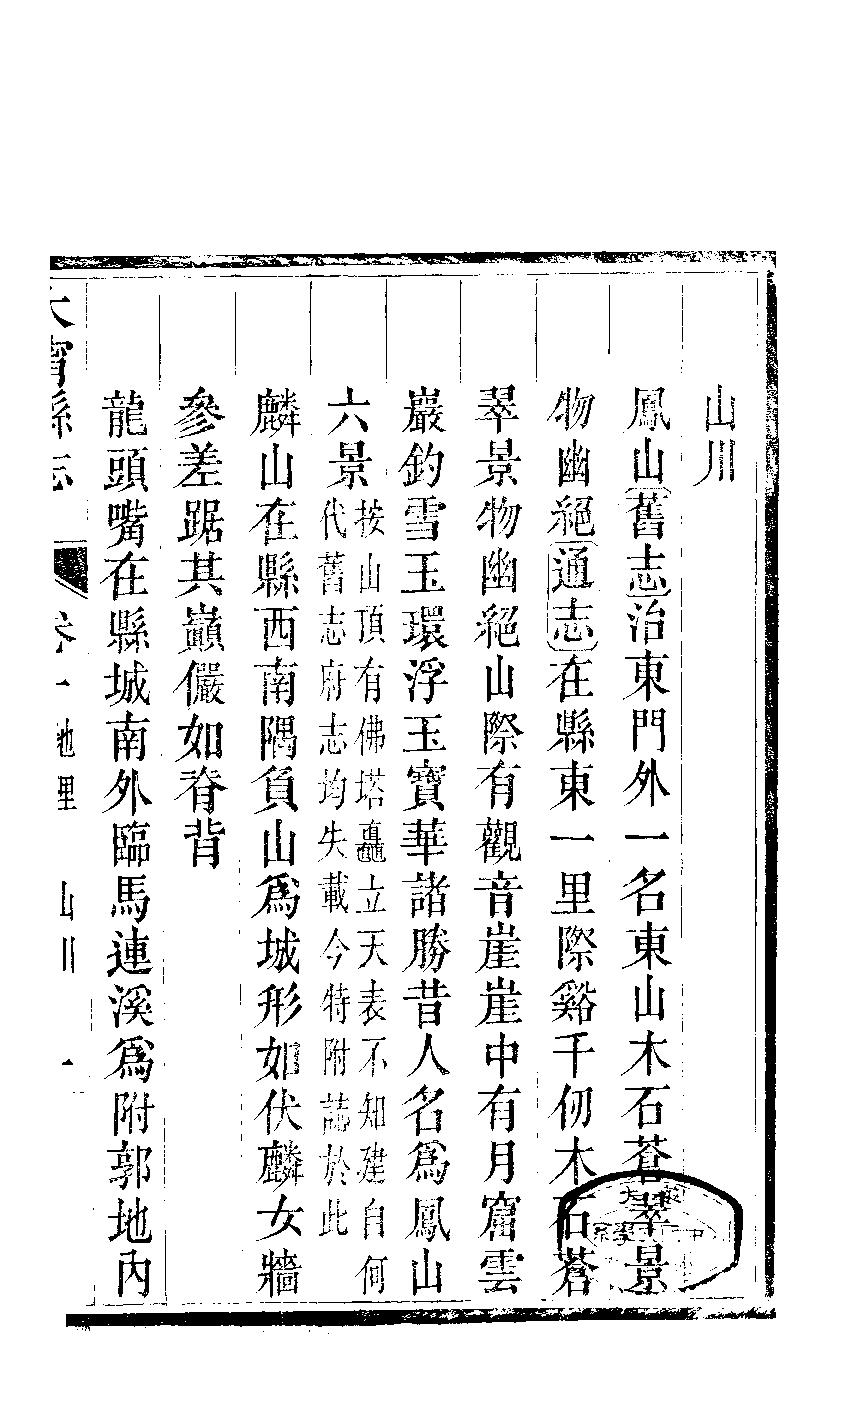 山川
鳳山舊志治東門外一名東山木石蒼翠景
物幽絕通志在縣東一里際谿千仞木石蒼
翠景物幽絕山際有觀音崖崖中有月窟雲
巖釣雪玉環浮玉寶華諸勝昔人名為鳳山
六景按山頂有佛塔矗立天表不知建自何
代舊志府志均失載今特附誌於此
麟山在縣西南隅負山為城形如伏麟女牆
參差踞其巔儼如脊背
龍頭嘴在縣城南外臨馬連溪為附郭地內
大甯縣志 卷一地理 山川 一